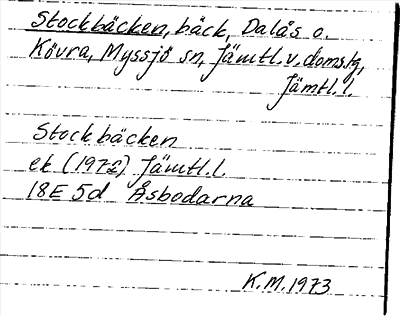 Stockbäcken, bäck, Dalås o.
Kövra, Myssjö sn, Jämtl.v.domsg,
Jämtl.l.
Stockbäcken
ek (1972) Jämtl.l.
18E 5d Åsbodarna
K.M.1973